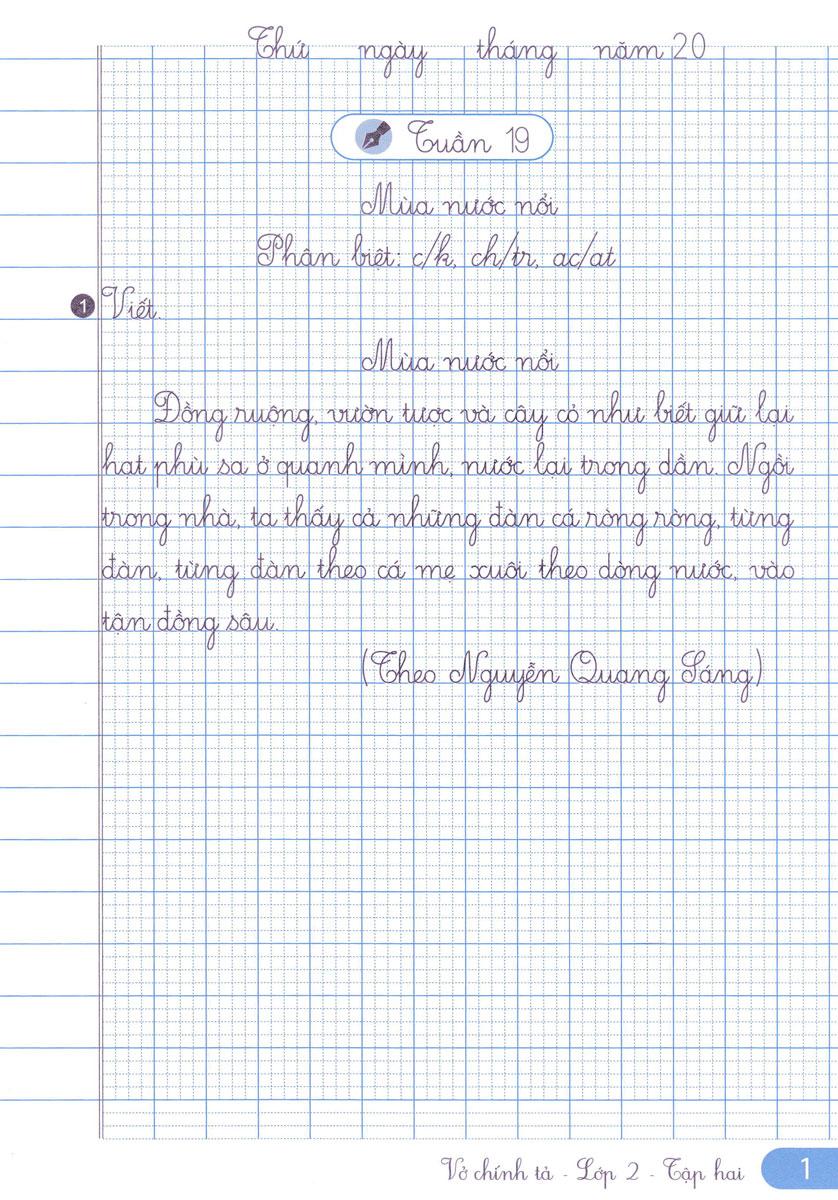 Thứ ngày tháng năm 20
Tuần 19
Mùa nước nổi
Phân biệt: c/k, ch/tr, ac/at
1 Viết.
Mùa nước nổi
Đồng ruộng, vườn tược và cây cỏ như biết giữ lại
hạt phù sa ở quanh mình, nước lại trong dần. Ngồi
trong nhà, ta thấy cả những đàn cá ròng ròng, từng
đàn, từng đàn theo cá mẹ xuôi theo dòng nước, vào
tận đồng sâu.
(Theo Nguyễn Quang Sáng)
Vở chính tả - Lớp 2 - Tập hai 1